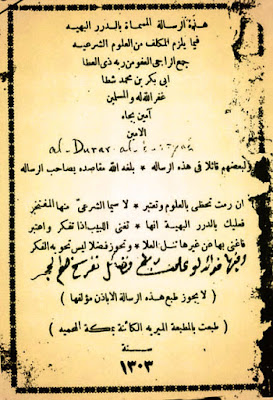 هذه الرسالة المسماة بالدرر البهيه
فيما يلزم المكلف من العلوم الشرعيه
جمع الراجى العفو من ربه ذى العطا
ابى بكر بن محمد شطا
غفر الله له وللمسلمين
آمين بجاه
الامين
al-Durar al-bahiyah
ولبعضهم قائلا فى هذه الرساله * بلغه الله مقاصده بصاحب الرساله
ان رمت تحظى بالعلوم وتعتبر * لا سيما الشرعىّ منها المفتخر
فعليك بالدرر البهية انها * تغنى اللبيب اذا تفكر واعتبر
فاغنى بها عن غيرها تنل العلا * وتحوز فضلا ليس تحويه الفكر
وفيها فوائد لو
( لا يجوز طبع هذه الرسالة الا باذن مؤلفها )
( طبعت بالمطبعة الميريه الكائنة بمكة المحميه )
سنة
١٣٠٣